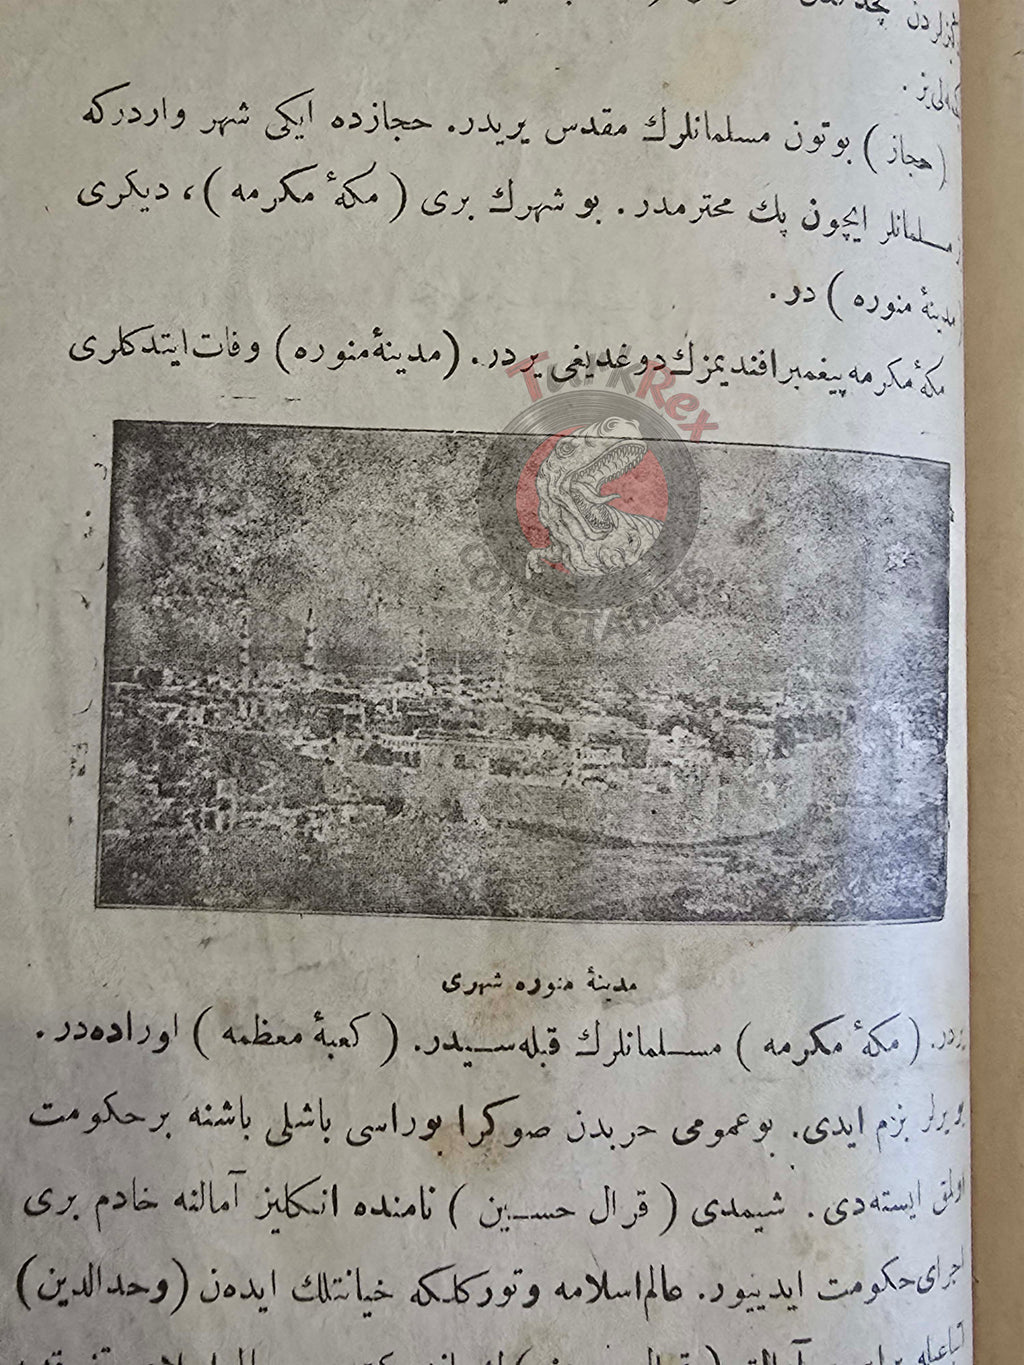 ( حجاز ) بوتون مسلمانلرك مقدس يريدر. حجازده ايكى شهر واردركه
مسلمانلر ايچون پك محترمدر. بو شهرك برى ( مكهٔ مكرمه )، ديكرى
مدينهٔ منوره ) در.
مكهٔ مكرمه پيغمبر افنديمزك دوغديغى يردر. (مدينهٔ منوره) وفات ايتدكلرى
TurkRex
COLLECTABLES
مدينهٔ منوره شهرى
يردر. ( مكهٔ مكرمه ) مسلمانلرك قبله‌سيدر. ( كعبهٔ معظمه ) اوراده‌در.
بو يرلر بزم ايدى. بو عمومى حربدن صوكرا بوراسى باشلى باشنه بر حكومت
اولمق ايسته‌دى. شيمدى ( قرال حسين ) نامنده انكليز آمالنه خادم برى
اجراى حكومت ايدييور. عالم اسلامه وتوركلكه خيانتلك ايده‌ن (وحدالدين)